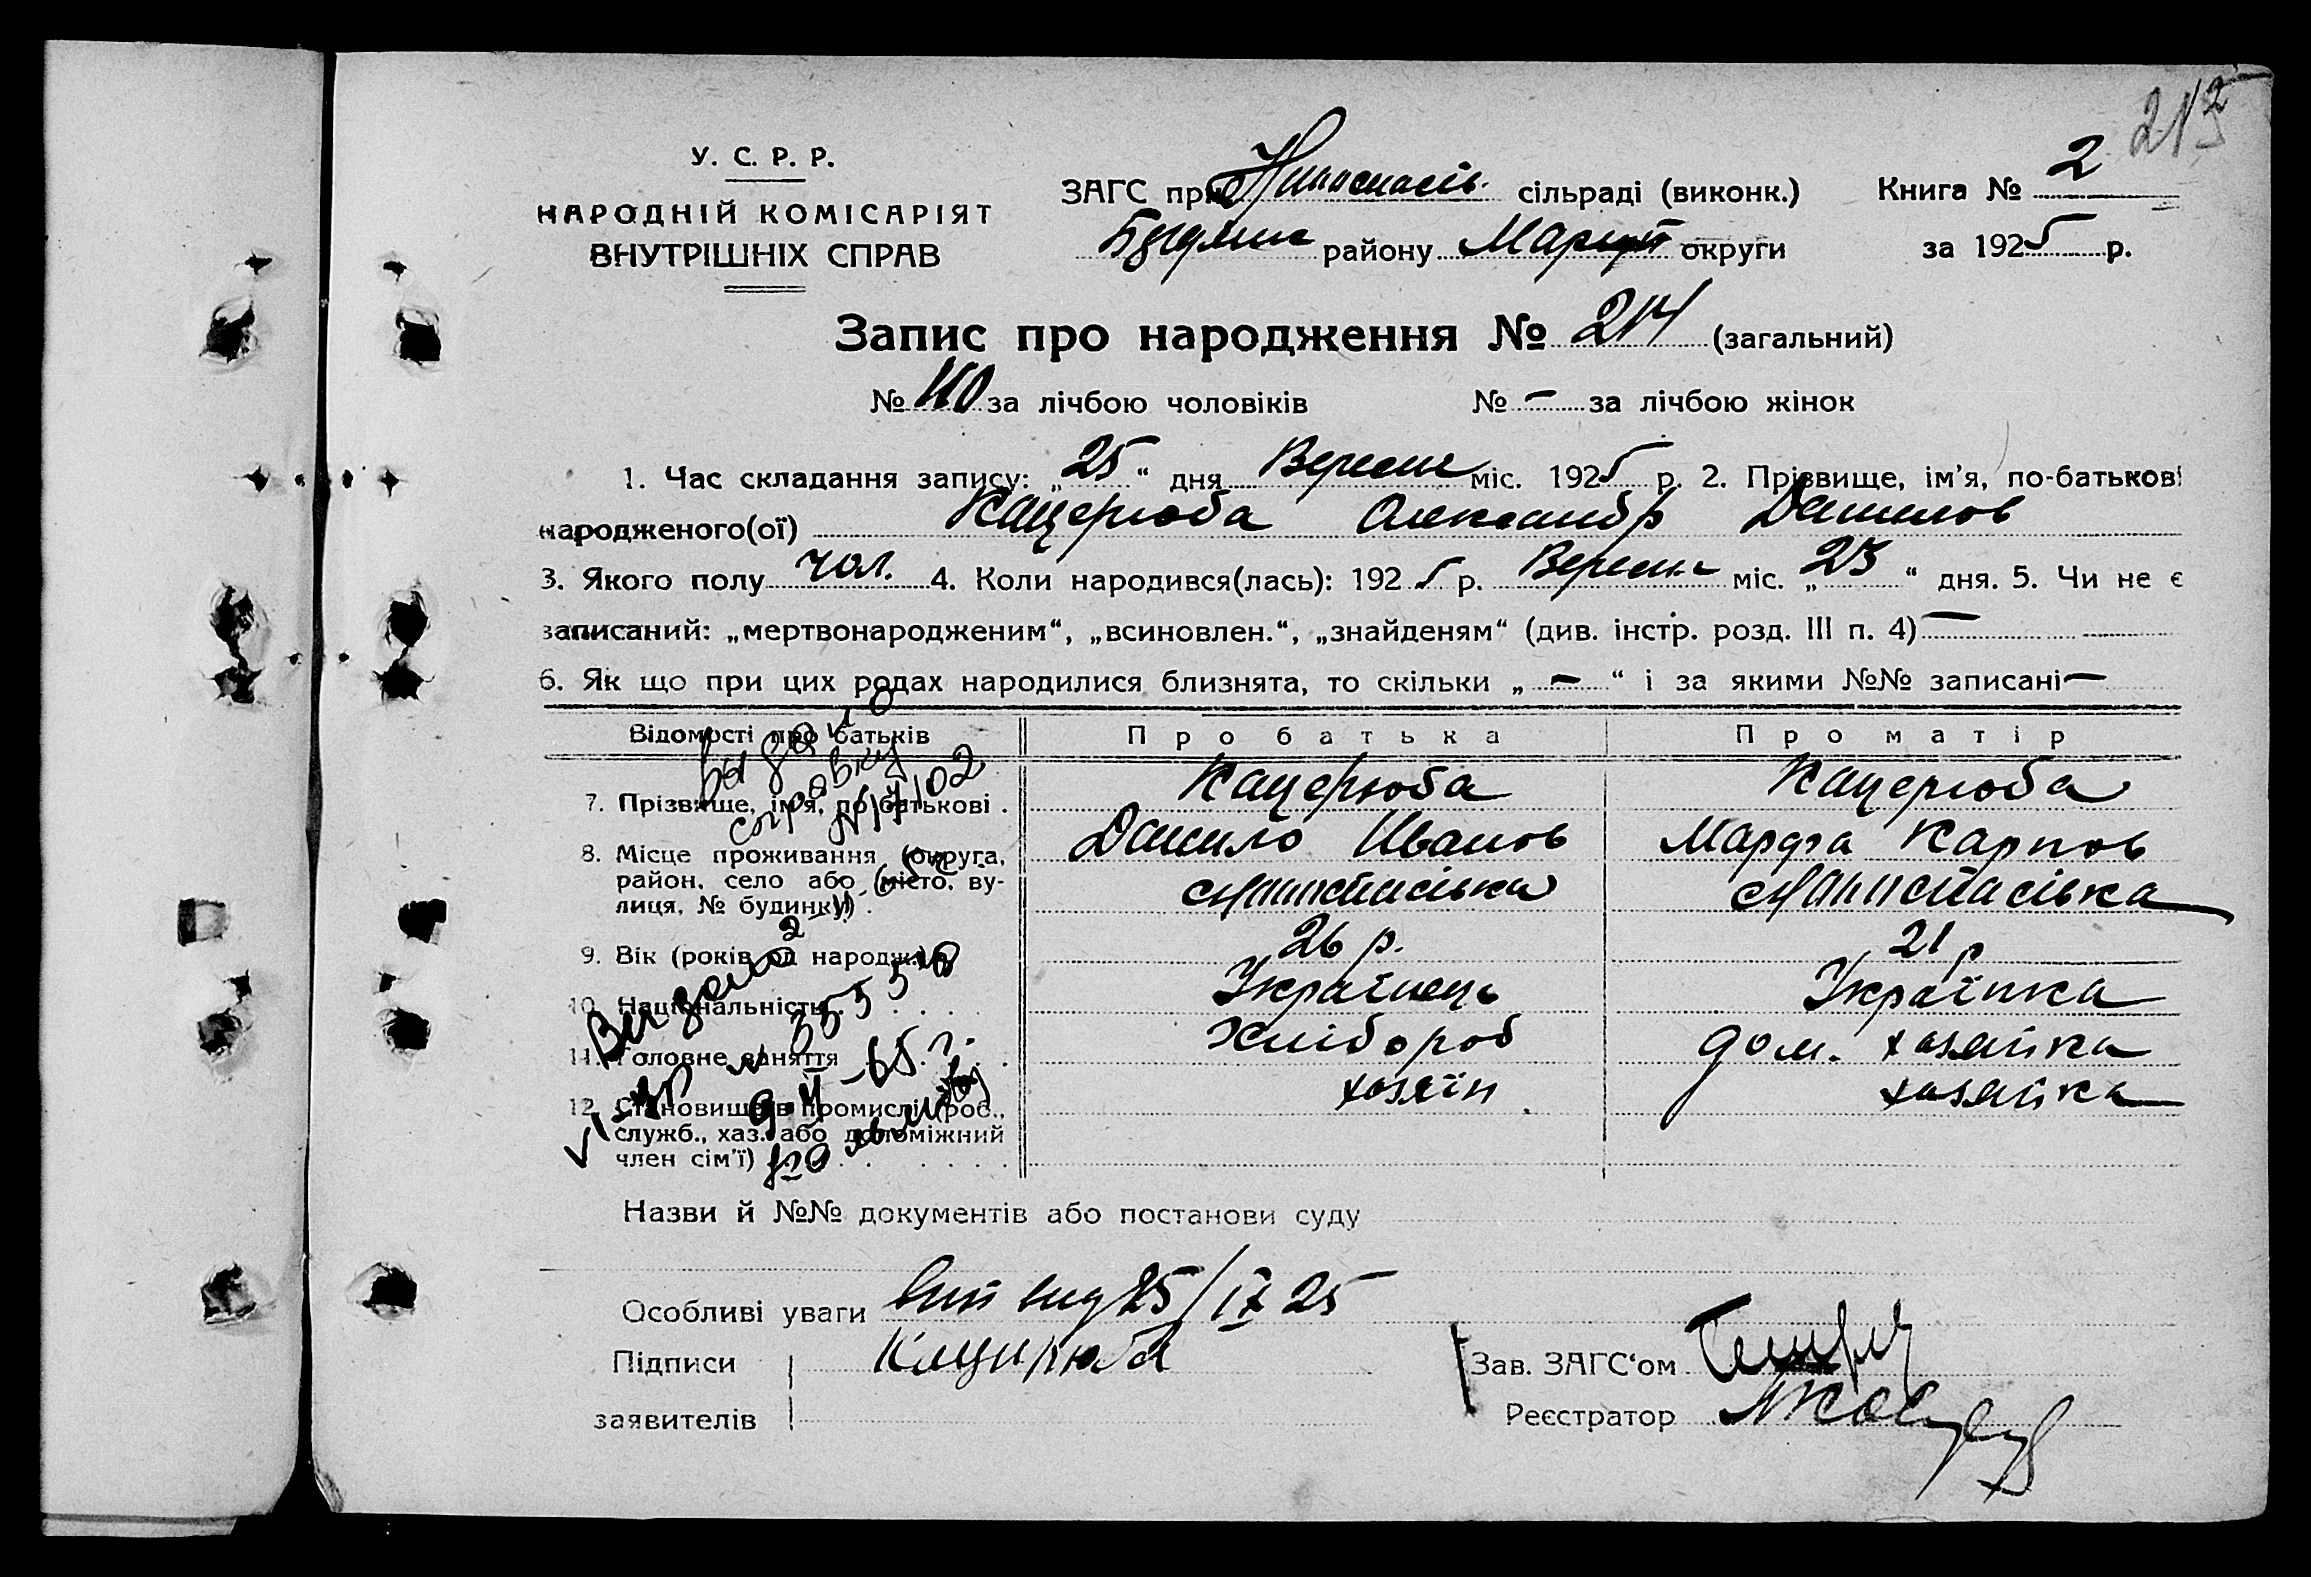 215
У. С. Р. Р.
НАРОДНІЙ КОМІСАРІЯТ
ВНУТРІШНІХ СПРАВ
ЗАГС при сільраді (виконк.) Книга № 2
району округи за 1925 р.
Запис про народження № 214 (загальний)
№ 110 за лічбою чоловіків № – за лічбою жінок
1. Час складання запису: „25“ дня Вересня міс. 1925 р. 2. Прізвище, ім'я, по-батькові
народженого(ої) Кацерюба Олександр Данилов
3. Якого полу чол. 4. Коли народився(лась): 1925 р. Вересня міс. „23“ дня. 5. Чи не є
записаний: „мертвонародженим“, „всиновлен.“, „знайденям“ (див. інстр. розд. III п. 4) –
6. Як що при цих родах народилися близнята, то скільки „ – “ і за якими №№ записані –
Відомості про батьків Про батька Про матір
7. Прізвище, ім'я, по батькові . Кацерюба Кацерюба
Данило Иванов Марфа Карпов
8. Місце проживання (округа,
район, село або (місто, ву-
лиця, № будинку) .
9. Вік (років од народж.) 26 р. 21 р
10. Національність Українець Українка
11. Головне заняття Хлібороб дом. хазяйка
12. Становище в промислі (роб.,
служб., хаз. або допоміжний
член сім'ї) хозяїн хазяйка
выдано
справку
Назви й №№ документів або постанови суду
Особливі уваги 25/IX 25
Підписи Кацирюба
заявителів
Зав. ЗАГС‘ом
Реєстратор